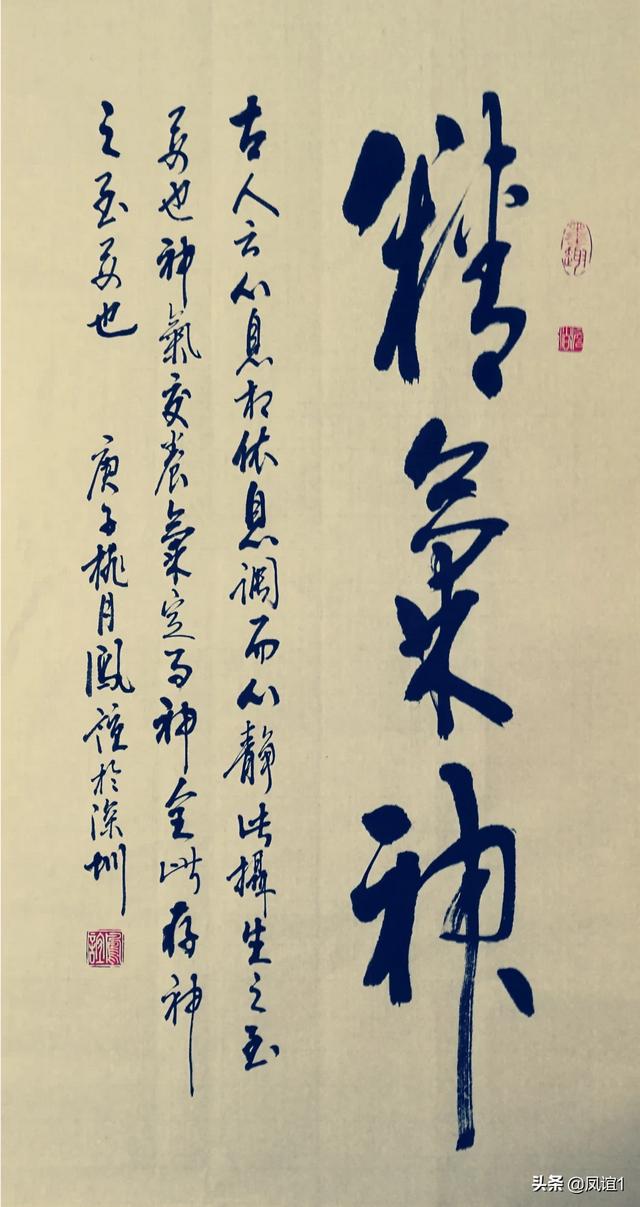 精氣神
古人云心息相依息調而心靜此攝生之至
要也神氣交養氣定而神全此存神
之至要也 庚子桃月鳳誼於深圳
鳳誼
头条 @凤谊1